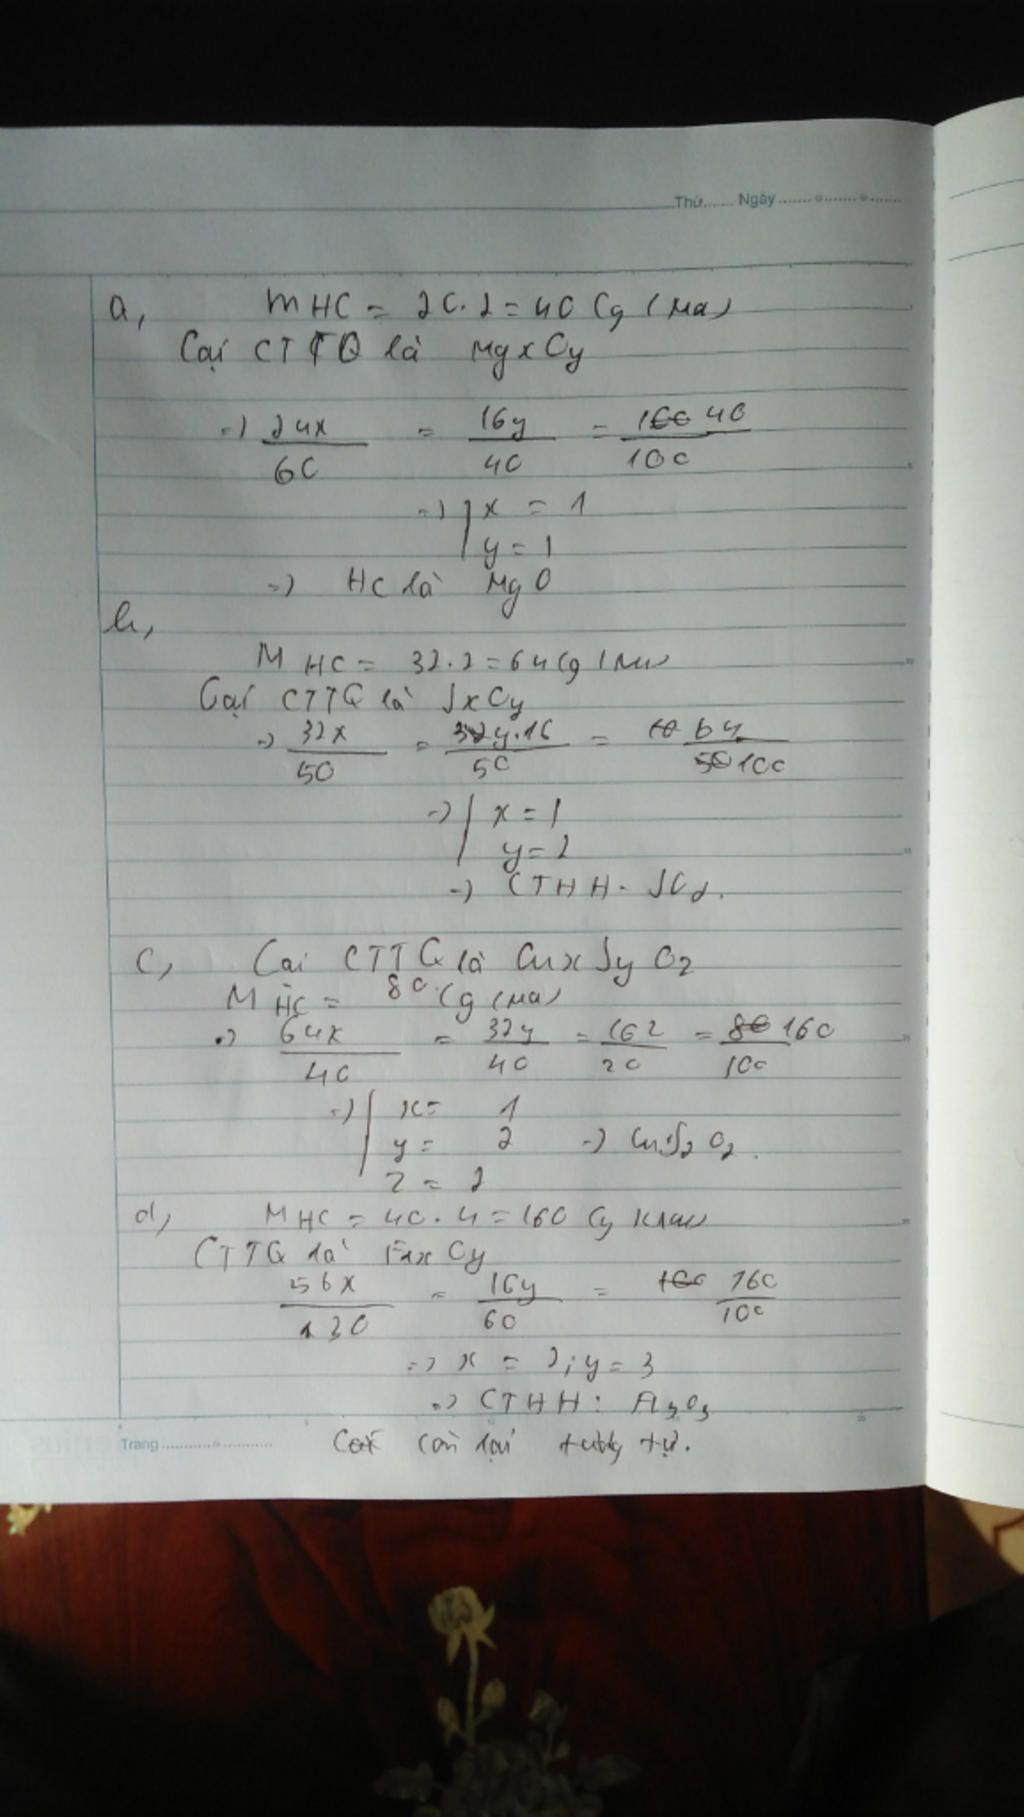 Thứ....... Ngày
a, mHC = 20.2 = 40 (g/mol)
Gọi CTTQ là MgxOy
=> 24x/60 = 16y/40 = 40/100
=> x = 1
y = 1
=> HC là MgO
b,
MHC = 32.2 = 64 (g/mol)
Gọi CTTQ là SxOy
=> 32x/50 = y.16/50 = 64/100
=> x = 1
y = 2
=> CTHH - SO2.
c, Gọi CTTQ là CuxSyOz
MHC = 80 (g/mol)
=> 64x/40 = 32y/40 = 16z/20 = 160/100
=> x = 1
y = 2 => CuS2O2.
z = 2
d, MHC = 40.4 = 160 (g/mol)
CTTQ là FexOy
56x/130 = 16y/60 = 160/100
=> x = 2; y = 3
=> CTHH:
Trang còn lại tương tự.